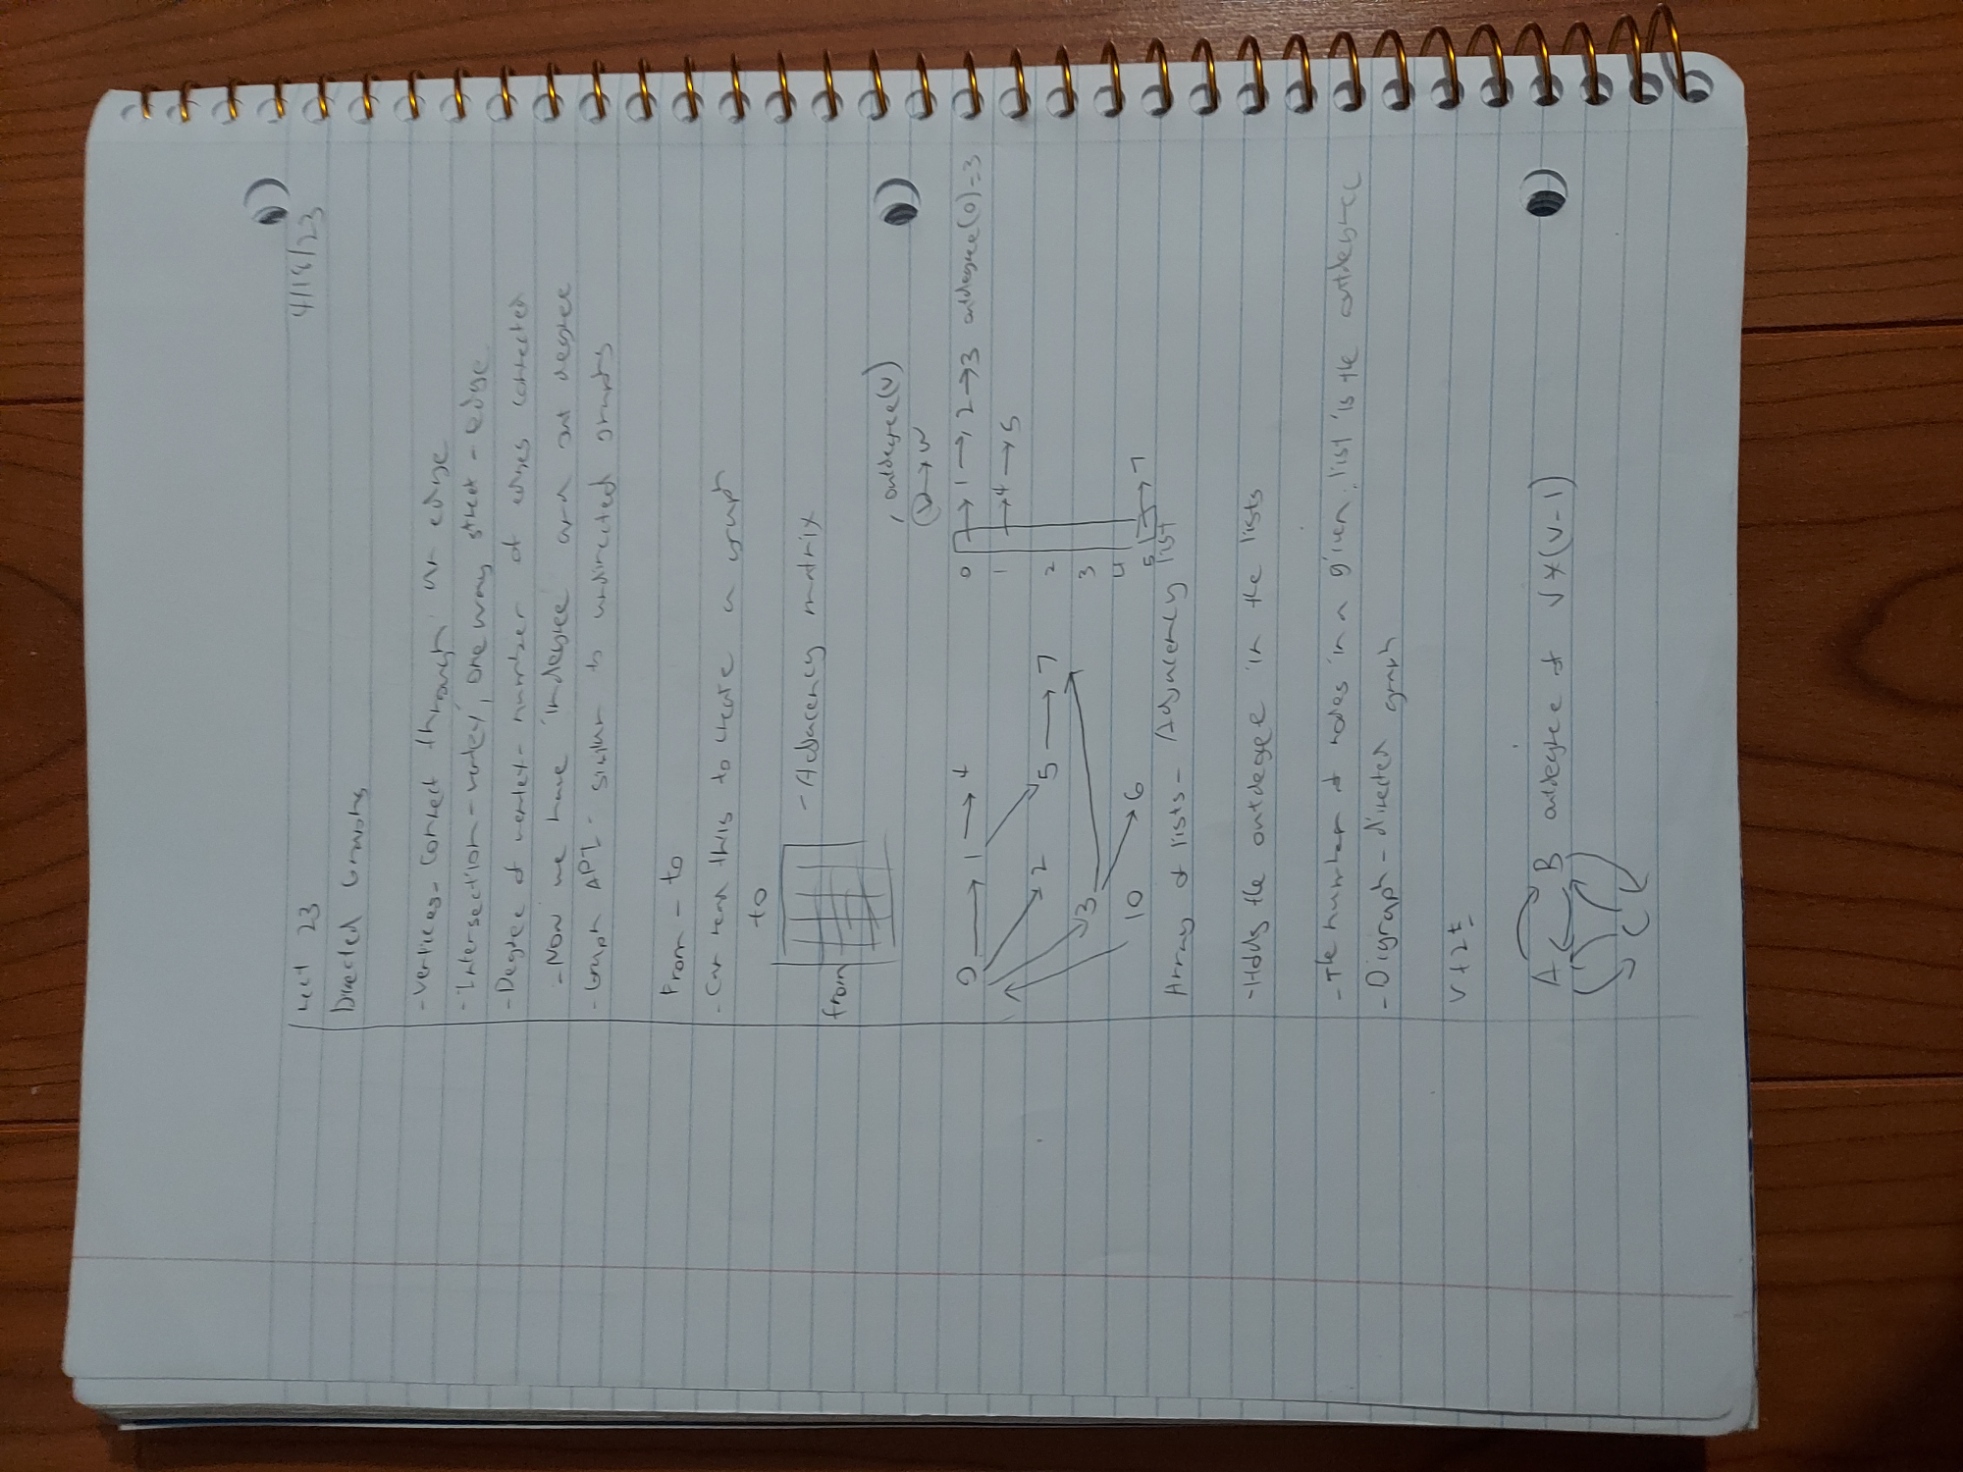 Lect 23
4/18/23
Directed Graphs
- Vertices - connect through an edge
- Intersection - vertex, one way street - edge
- Degree of vertex - number of edges connected
- Now we have indegree and out degree
- Graph API - similar to undirected graphs
From - to
- Can read this to create a graph
to
from
- Adjacency matrix
, outdegree(v)
V → W
0 → 1 → 4
0 → 1 → 2 → 3 outdegree(0)=3
1 → 4 → 5
2
5 → 7
2
3
3
10
6
4
5 → 7
Array of lists - Adjacency list
- Holds the outdegree in the lists
- The number of nodes in a given list is the outdegree
- Digraph - directed graph
V + 2E
A B outdegree of V*(V-1)
C